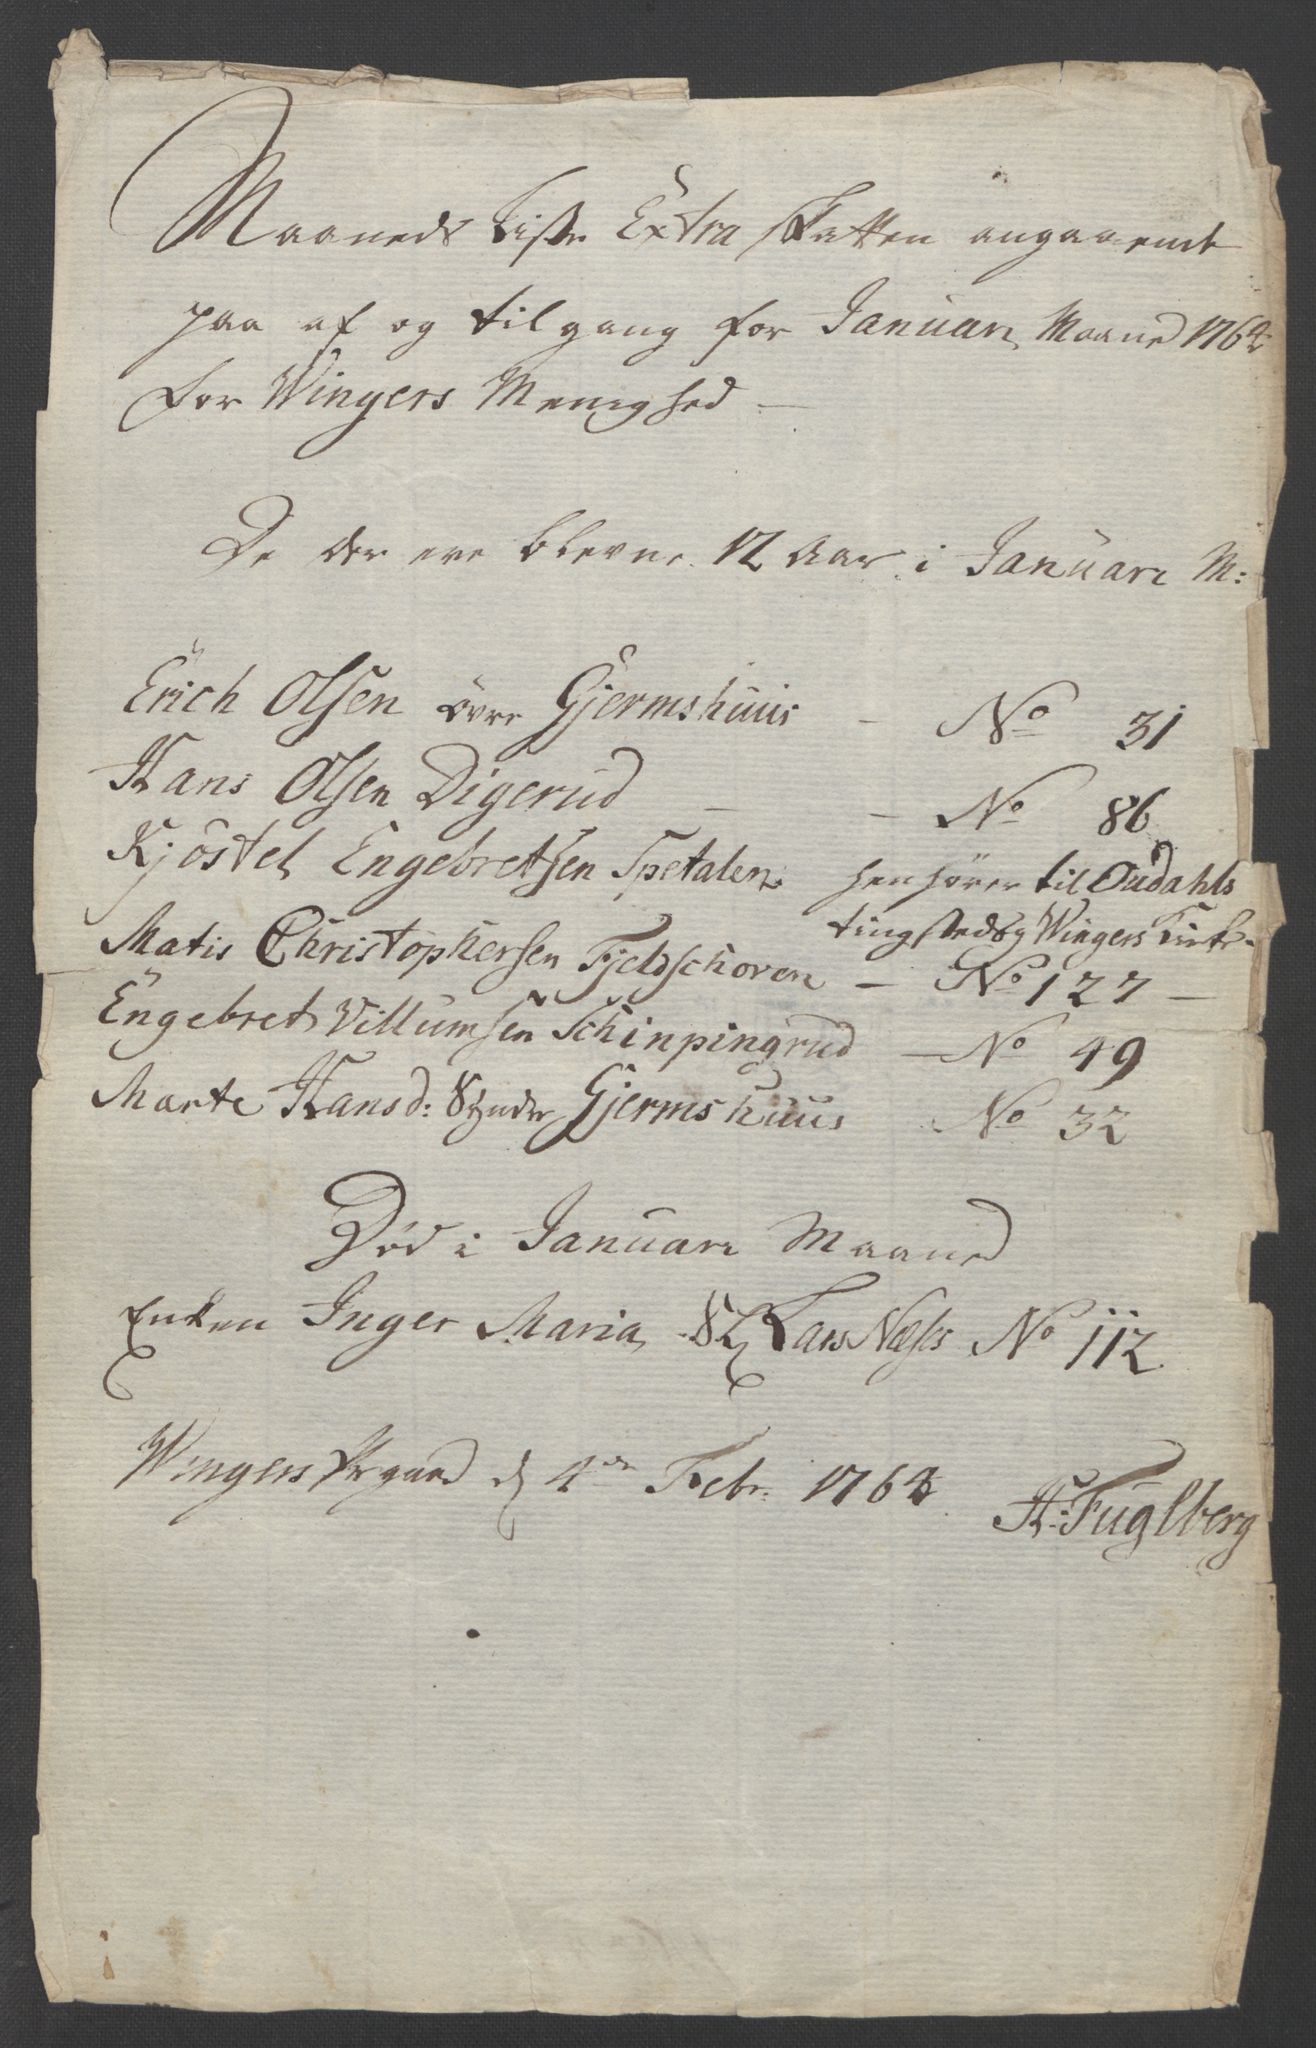 Maaneds Liste Extra Skatten angaaende
paa af og til gang for Januari Maaned 1764
for Wingers Menighed —
De der ere blevne 12 Aar i Januari M:
Erich Olsen øvre Gjermshuus - No 31
Hans Olsen Digerud - - No 86
Kjöstel Engebretsen Spetalen henhörer til Oudahls
tingsted og Wingers Kirke.
Matis Christophersen Fjeldschoven - No 127 -
Engebret Villumsen Schinpingrud - No 49
Marte Hansd: Gjermshuus No 32
Död i Januari Maaned
Enken Inger Maria Sl Lars Næses No 112
Wingers Prgaard d 4de Febr: 1764
H: Fuglberg